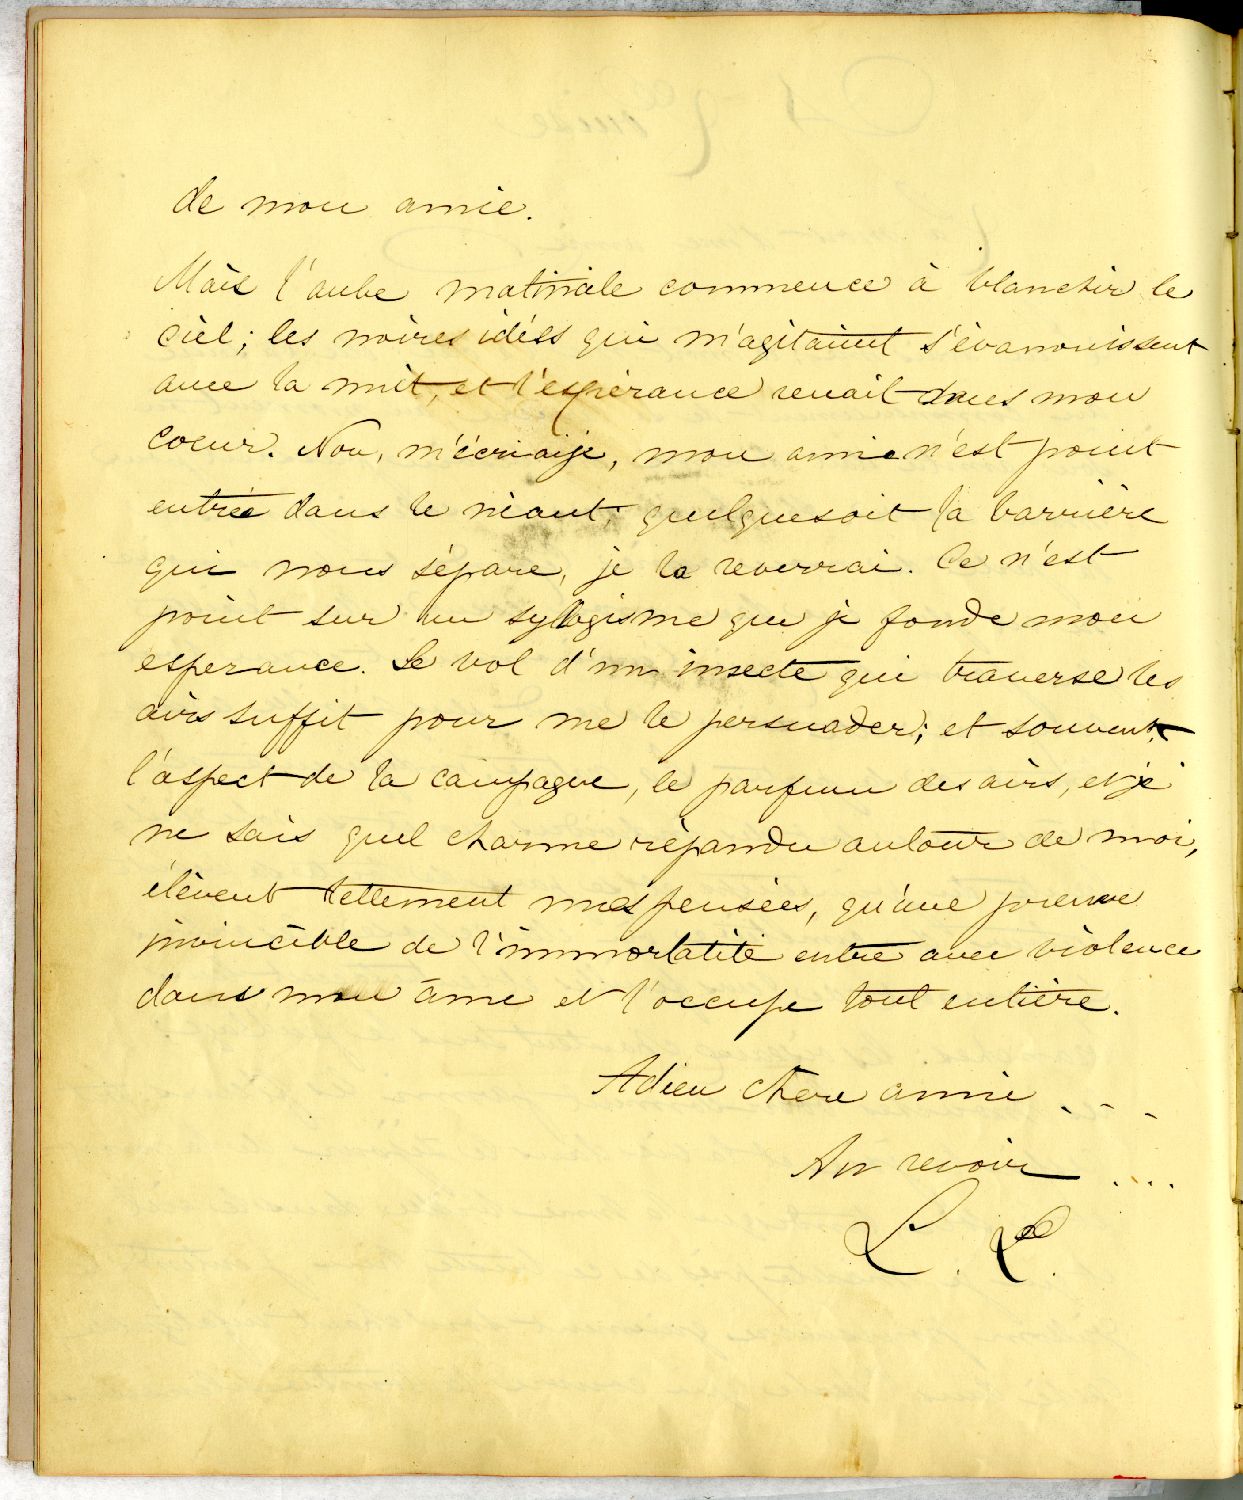 de mon amie.
Mais l'aube matinale commence à blanchir le
ciel; les noires idées qui m'agitaient s'évanouissent
avec la nuit, et l'espérance renait dans mon
coeur. Non, m'écriaije, mon amie n'est point
entrée dans le néant; quelquesoit la barrière
qui nous sépare, je la reverrai. Ce n'est
point sur un sylogisme que je fonde mon
esperance. Le vol d'un insecte qui traverse les
airs suffit pour me le persuader; et souvent,
l'aspect de la campagne, le parfum des airs, et je
ne sais quel charme répandu autour de moi,
élèvent tellement mes pensées, qu'une preuve
invincible de l'immortalité entre avec violence
dans mon âme et l'occupe tout entière.
Adieu chere amie ...
Au revoir ....
L. L.